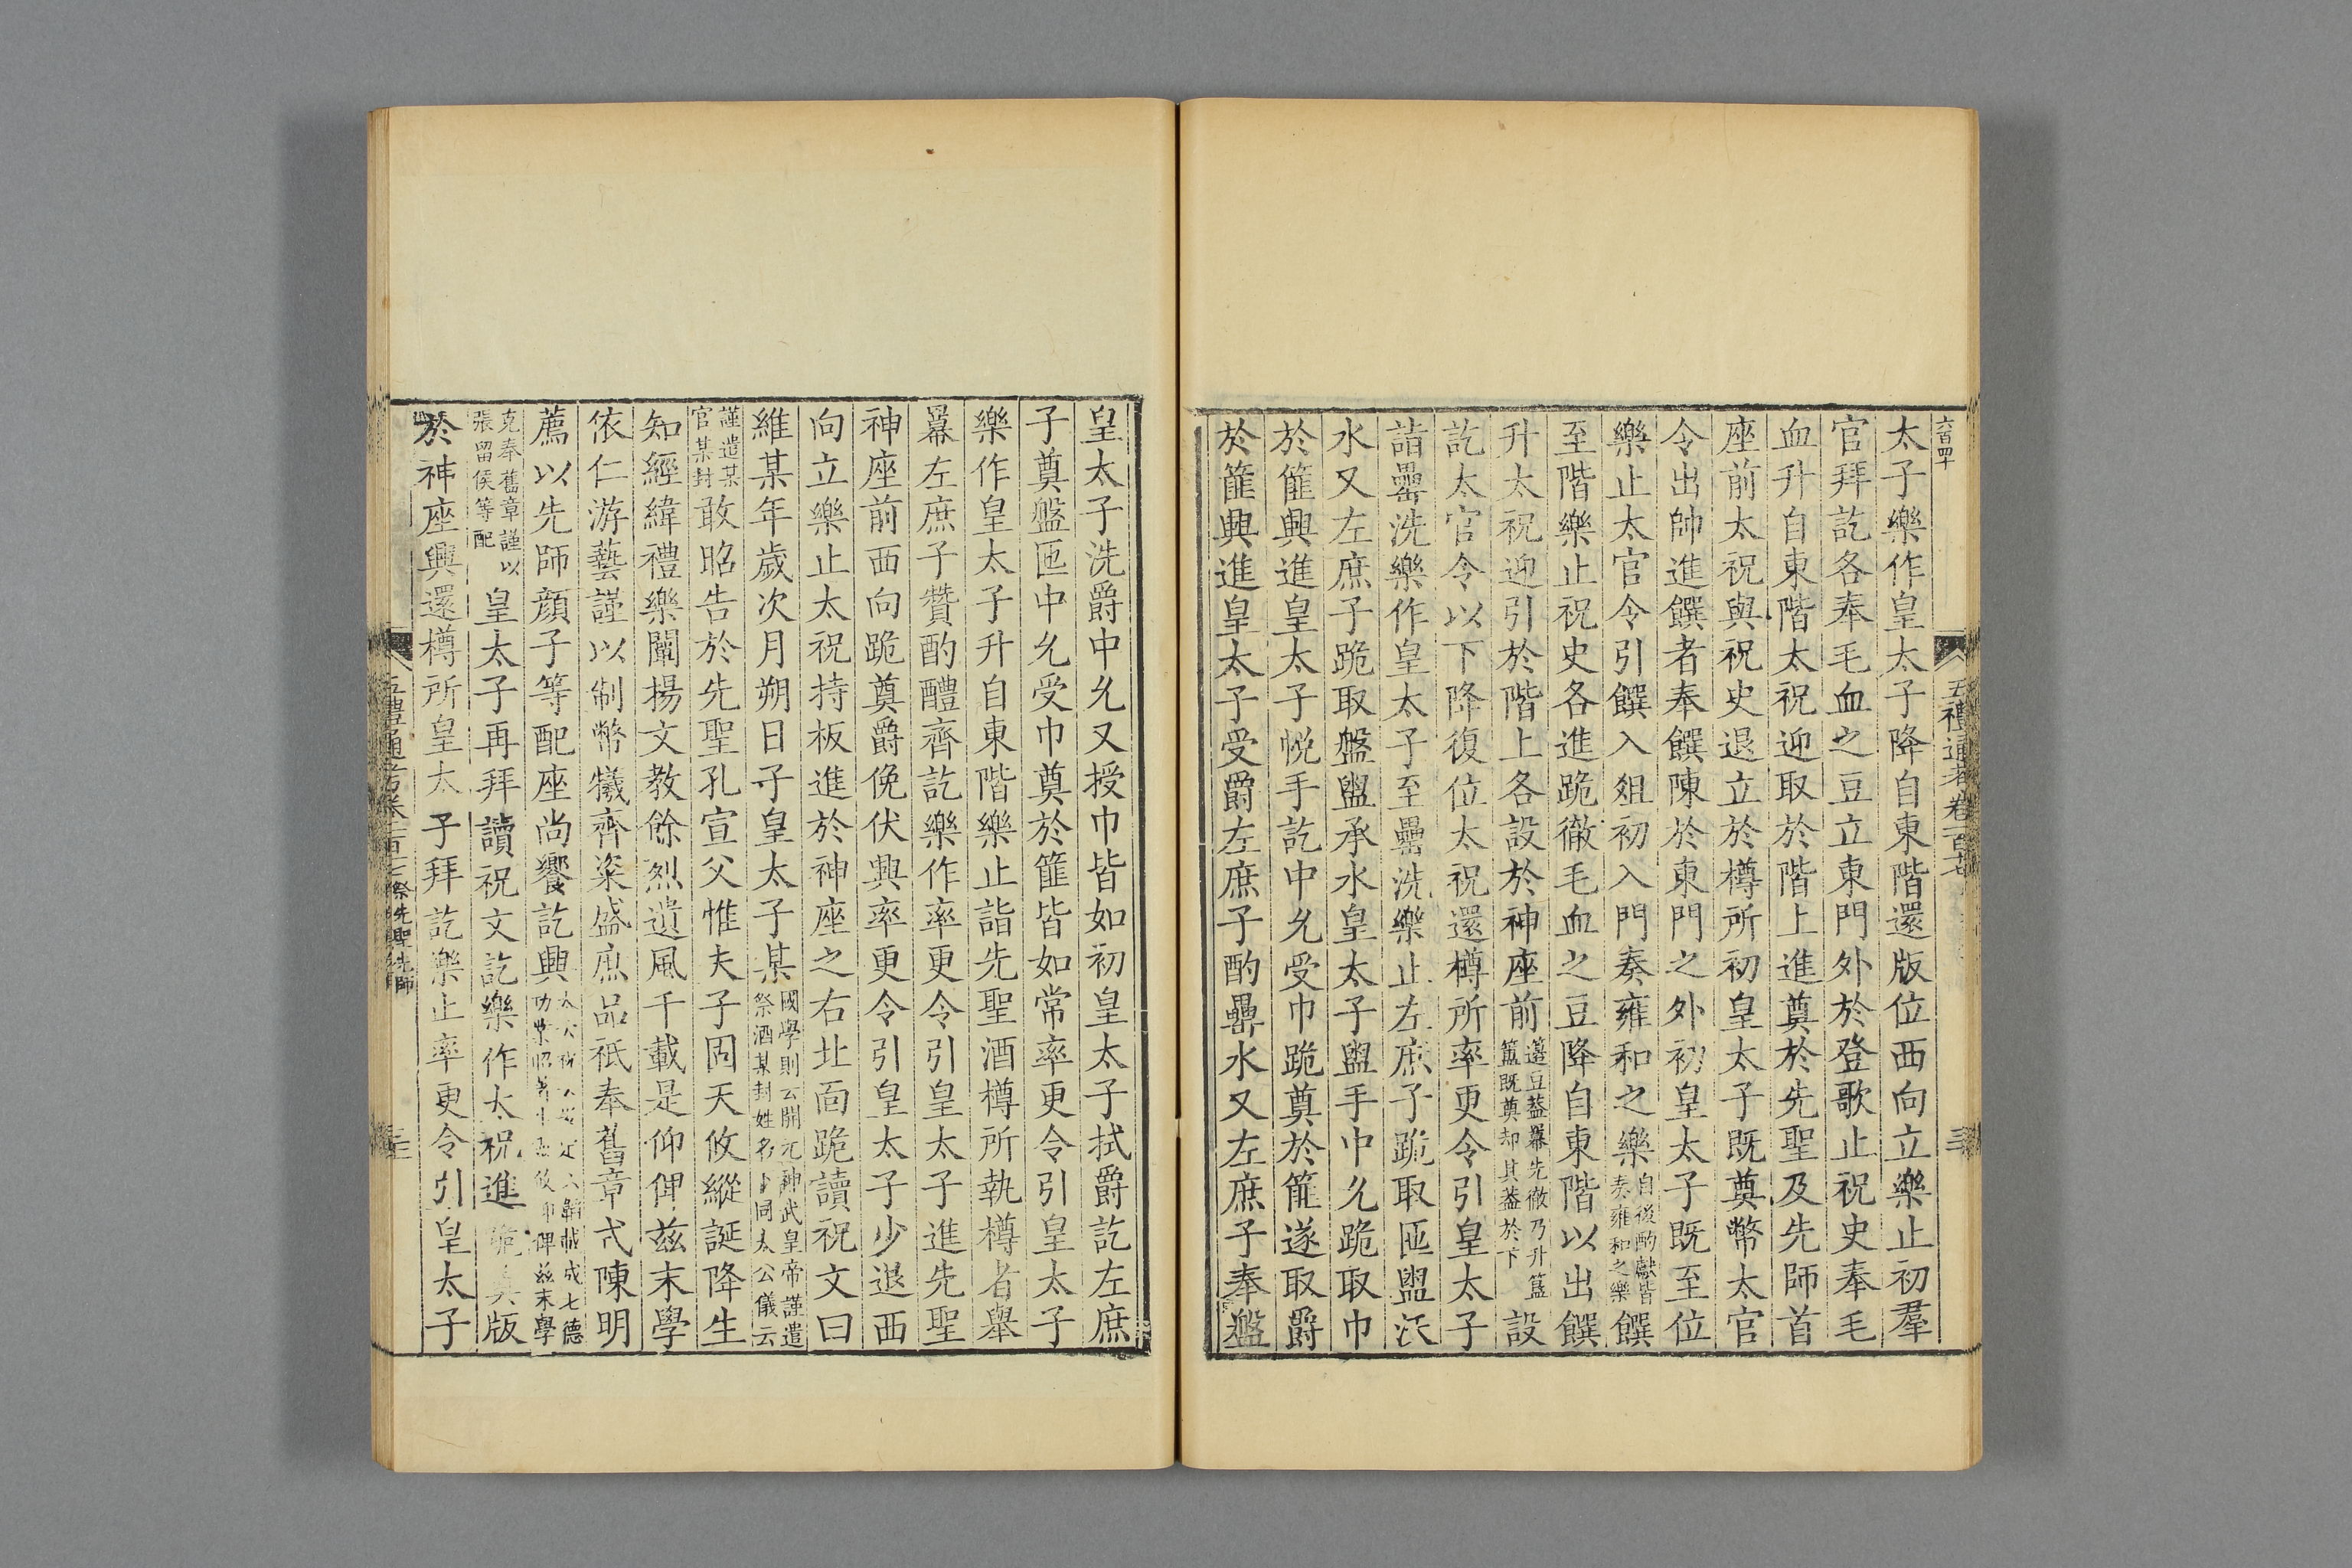 六百四十
五禮通考卷一百十七
太子樂作皇太子降自東階還版位西向立樂止初羣
官拜訖各奉毛血之豆立東門外於登歌止祝史奉毛
血升自東階太祝迎取於階上進奠於先聖及先師首
座前太祝與祝史退立於樽所初皇太子既奠幣太官
令出帥進饌者奉饌陳於東門之外初皇太子既至位
樂止太官令引饌入俎初入門奏雍和之樂自後酌獻皆奏雍和之樂饌
至階樂止祝史各進跪徹毛血之豆降自東階以出饌
升太祝迎引於階上各設於神座前籩豆蓋羃先徹乃升簋簠既奠却其蓋於下設
訖太官令以下降復位太祝還樽所率更令引皇太子
詣罍洗樂作皇太子至罍洗樂止左庶子跪取匜盥沃
水又左庶子跪取盤盥承水皇太子盥手中允跪取巾
於篚興進皇太子帨手訖中允受巾跪奠於篚遂取爵
於篚興進皇太子受爵左庶子酌罍水又左庶子奉盤
皇太子洗爵中允又授巾皆如初皇太子拭爵訖左庶
子奠盤匜中允受巾奠於篚皆如常率更令引皇太子
樂作皇太子升自東階樂止詣先聖酒樽所執樽者舉
羃左庶子贊酌醴齊訖樂作率更令引皇太子進先聖
神座前西向跪奠爵俛伏興率更令引皇太子少退西
向立樂止太祝持板進於神座之右北面跪讀祝文曰
維某年歲次月朔日子皇太子某國學則云開元神武皇帝謹遣祭酒某封姓名下同太公儀云
謹遣某官某封敢昭告於先聖孔宣父惟夫子固天攸縱誕降生
知經緯禮樂闡揚文教餘烈遺風千載是仰俾兹末學
依仁游藝謹以制幣犧齊粢盛庶品祇奉舊章式陳明
薦以先師顔子等配座尚饗訖興六韜載成七德功業昭攸仰俾兹末學
克奉舊章謹以張留侯等配皇太子再拜讀祝文訖樂作太祝進版
於神座興還樽所皇太子拜訖樂止率更令引皇太子
五禮通考卷一百十七祭先聖先師